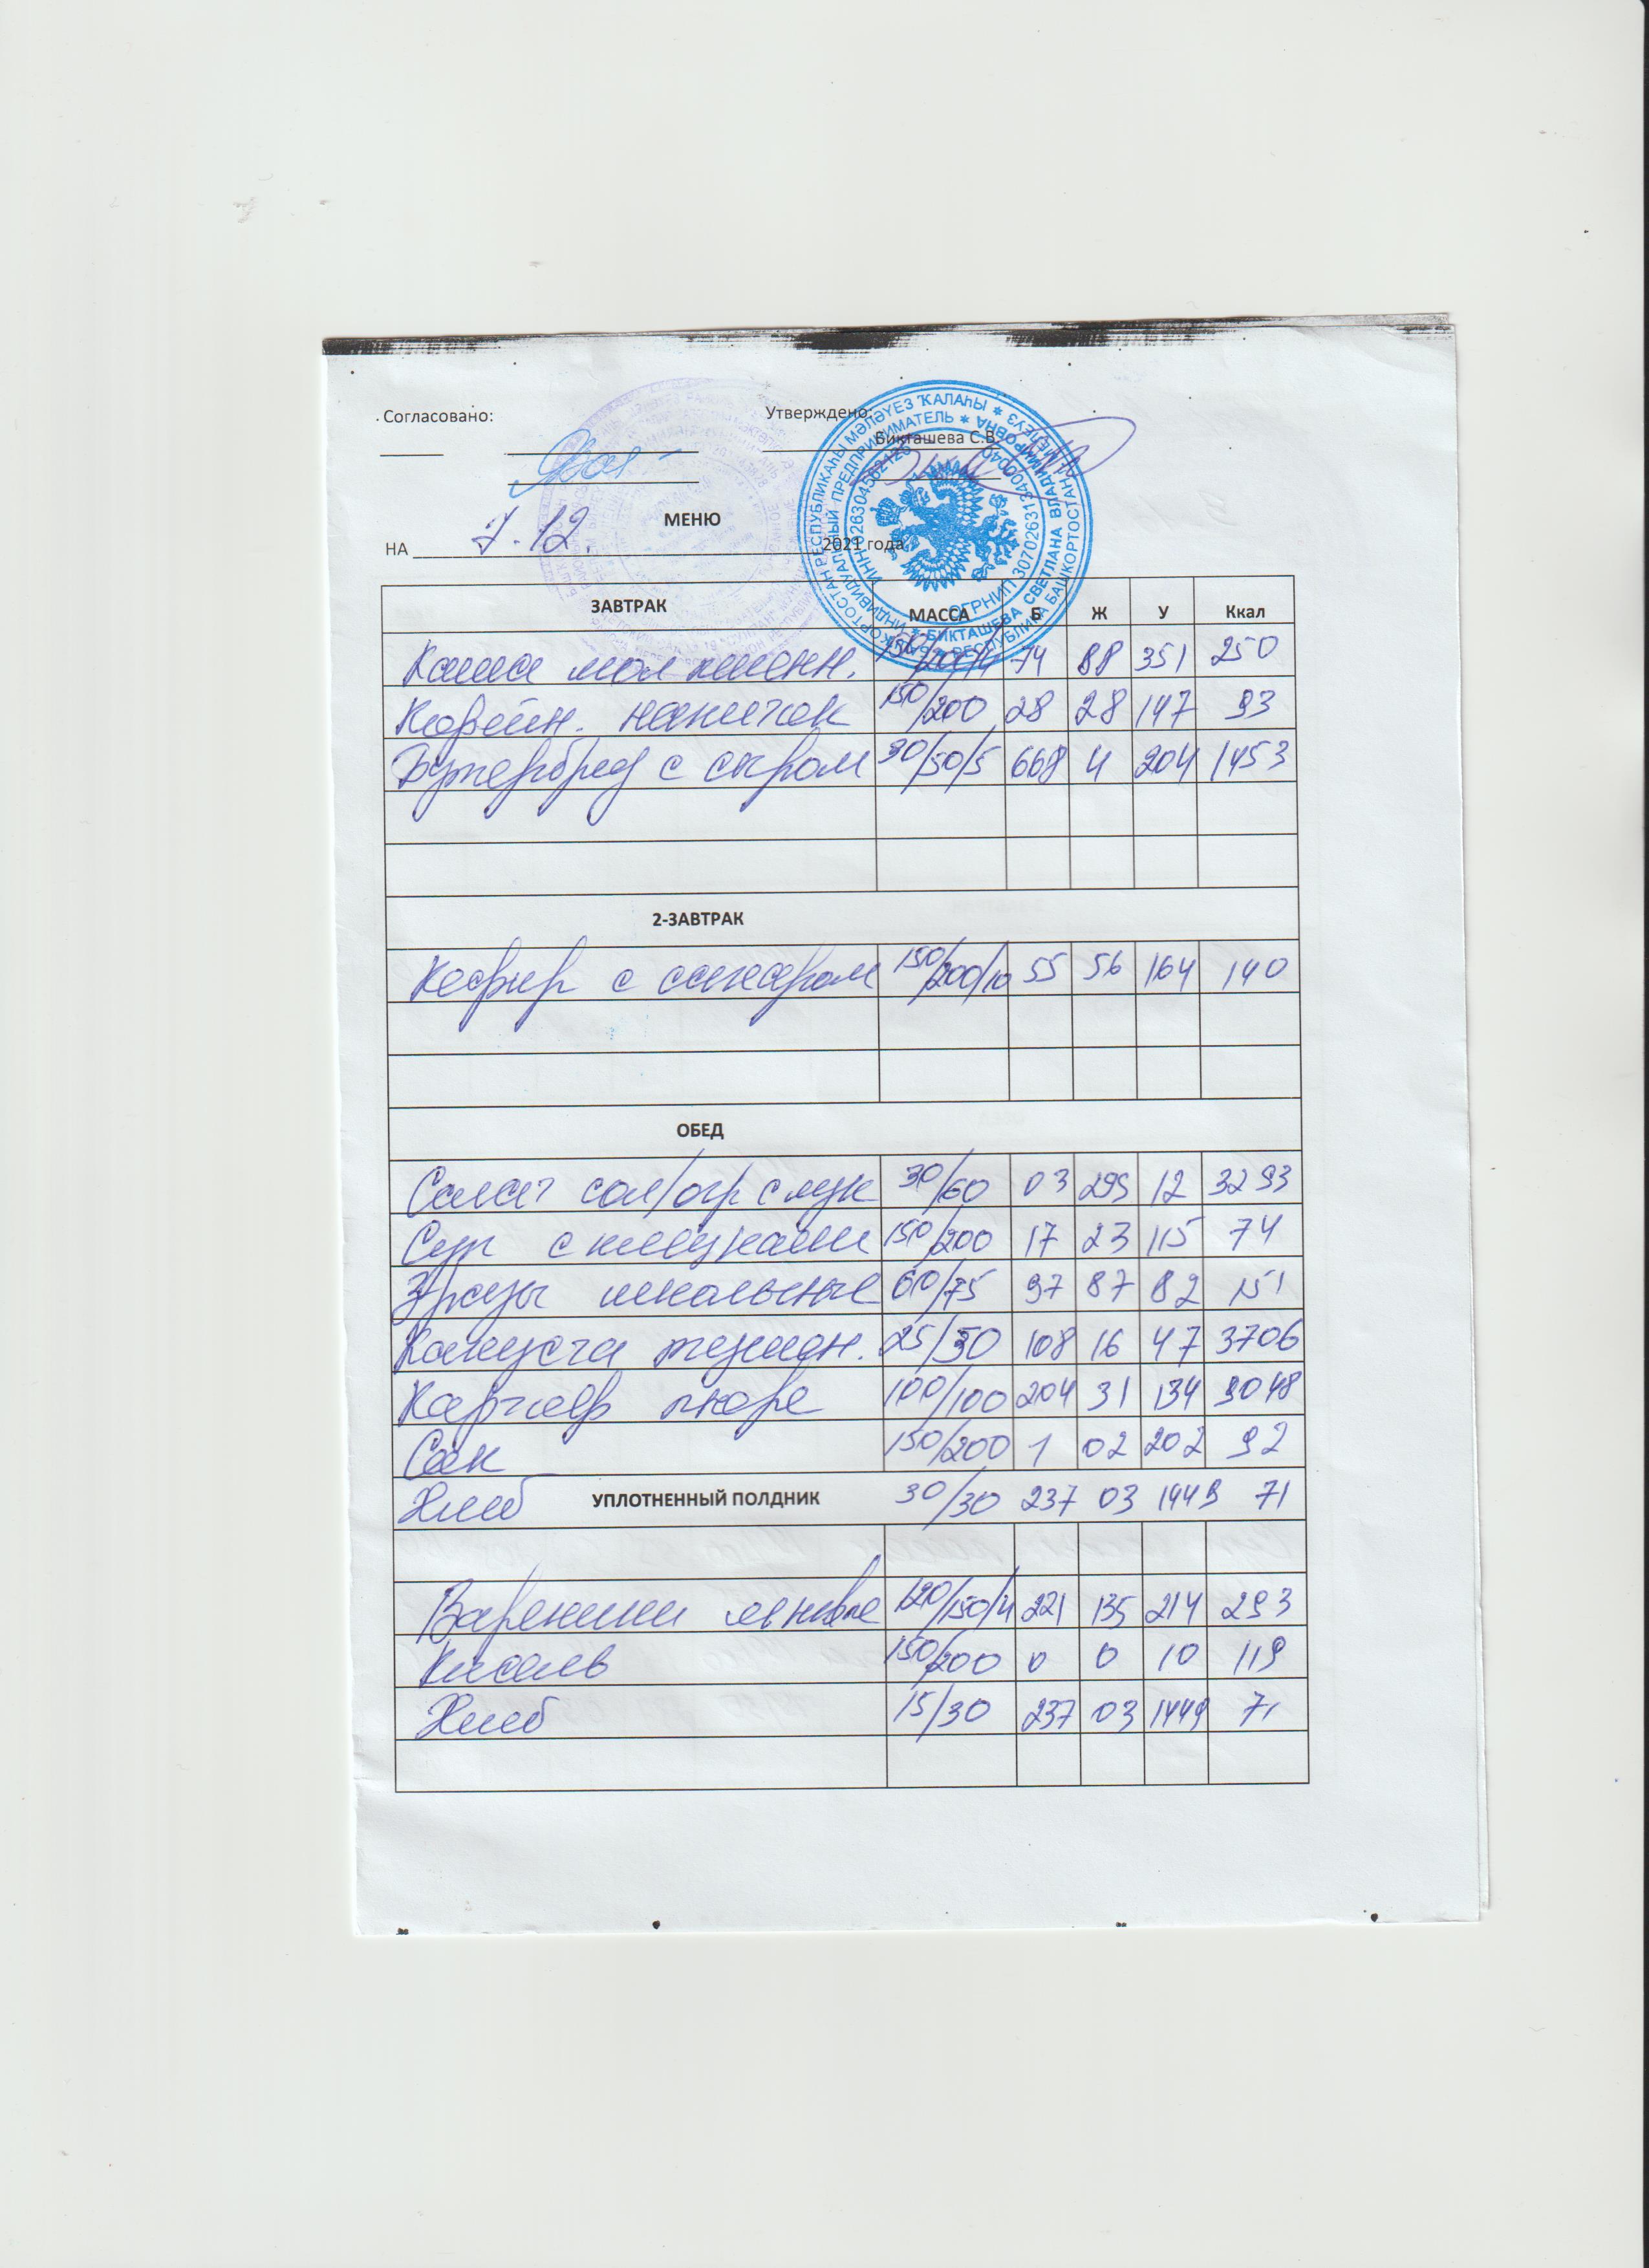 Согласовано: Утверждено:
Бикташева С.В.
МЕНЮ
НА 7.12. 2021 года
ЗАВТРАК МАССА Б Ж У Ккал
Каша мол пшенн. 150/200/4 74 88 351 250
Кофейн. напиток 150/200 28 28 147 93
Бутерброд с сыром 30/50/5 668 4 204 1453
2-ЗАВТРАК
Кефир с сахаром 150/200/10 55 56 164 140
ОБЕД
Салат сол/огр с лук 30/60 03 295 12 3293
Суп с клецками 150/200 17 23 115 74
Зразы школьные 60/75 97 87 82 151
Капуста тушен. 25/50 108 16 47 3706
Картоф пюре 100/100 204 31 134 9048
Сок 150/200 1 02 202 92
Хлеб УПЛОТНЕННЫЙ ПОЛДНИК 30/30 237 03 1449 71
Вареники ленивые 120/150/4 221 135 214 293
Кисель 150/200 0 0 10 119
Хлеб 15/30 237 03 1449 71
БАШКОРТОСТАН РЕСПУБЛИКАҺЫ МӘЛӘҮЕЗ ҠАЛАҺЫ * РЕСПУБЛИКА БАШКОРТОСТАН Г. МЕЛЕУЗ
ИНДИВИДУАЛЬНЫЙ ПРЕДПРИНИМАТЕЛЬ * БИКТАШЕВА СВЕТЛАНА ВЛАДИМИРОВНА
ИНН 026304562126 ОГРНИП 307026313400040